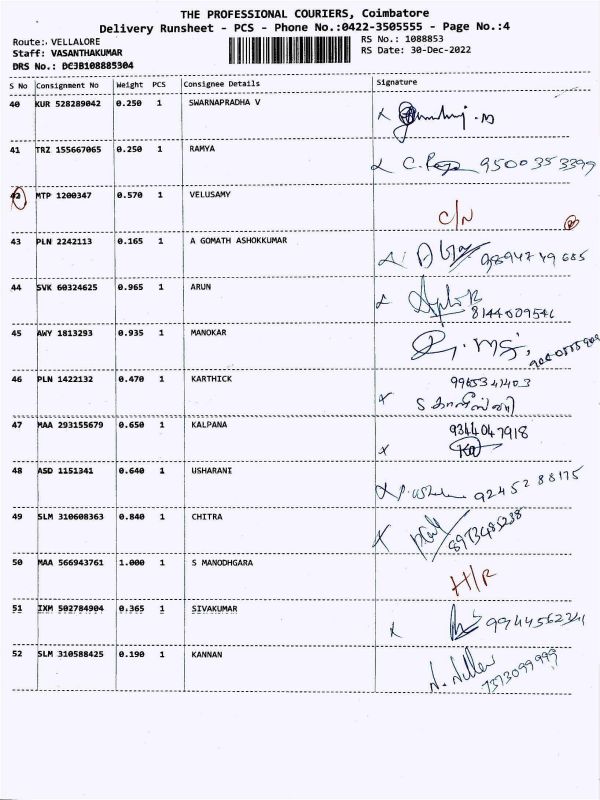 THE PROFESSIONAL COURIERS, Coimbatore
Delivery Runsheet - PCS - Phone No.:0422-3505555 - Page No.:4
Route: VELLALORE
RS No.: 1088853
Staff: VASANTHAKUMAR
RS Date: 30-Dec-2022
DRS No.: DCJB108885304
S No Consignment No Weight PCS Consignee Details Signature
40 KUR 528289042 0.250 1 SWARNAPRADHA V
41 TRZ 155667065 0.250 1 RAMYA
9500353399
42 MTP 1200347 0.570 1 VELUSAMY
C/N
43 PLN 2242113 0.165 1 A GOMATH ASHOKKUMAR
9894749685
44 SVK 60324625 0.965 1 ARUN
8144009546
45 AWY 1813293 0.935 1 MANOKAR
46 PLN 1422132 0.470 1 KARTHICK
9965341403
47 MAA 293155679 0.650 1 KALPANA
9344047918
48 ASD 1151341 0.640 1 USHARANI
9245288175
49 SLM 310608363 0.840 1 CHITRA
50 MAA 566943761 1.000 1 S MANODHGARA
H/R
51 IXM 502784904 0.365 1 SIVAKUMAR
52 SLM 310588425 0.190 1 KANNAN
7373099999